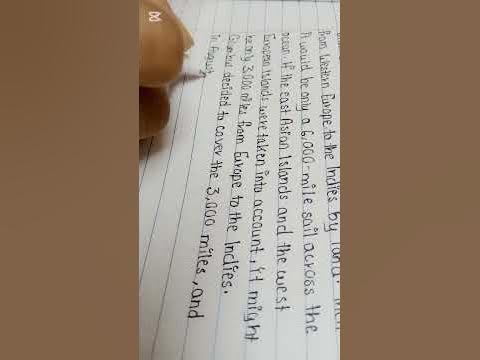 from Western Europe to the Indies by land. Then
it would be only a 6,000-mile sail across the
ocean. If the east Asian Islands and the west
European Islands were taken into account, it might
be only 3,000 miles from Europe to the Indies.
Columbus decided to cover the 3,000 miles, and
In August